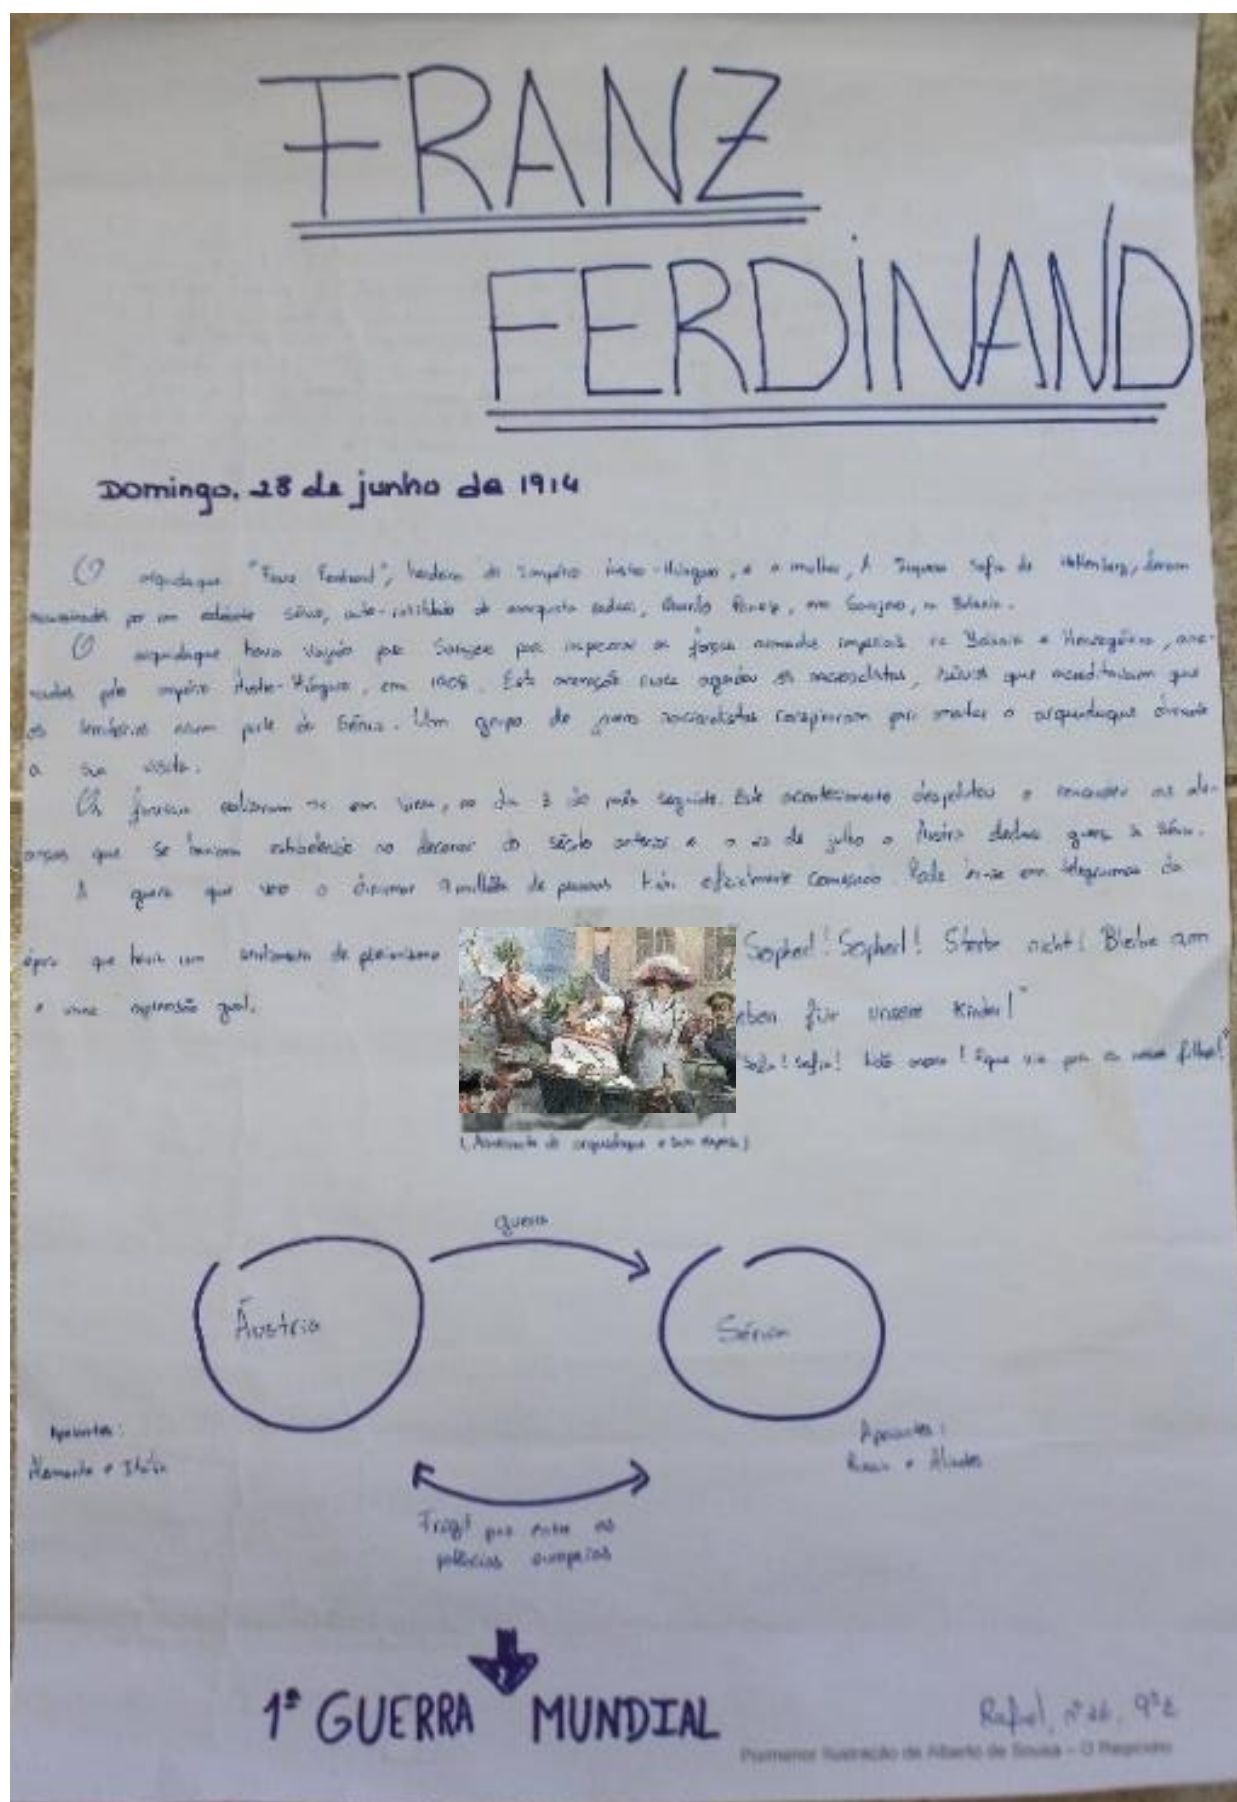 FRANZ
FERDINAND
Domingo, 28 de junho de 1914
O arquiduque "Franz Ferdinand", herdeiro do Império Austro-Húngaro, e a mulher, A Duquesa Sofia de Hohenberg, foram
assassinados por um estudante sérvio, em Sarajevo, na Bósnia.
O arquiduque havia viajado para Sarajevo para inspecionar as forças armadas imperiais na Bósnia e Herzegovina, ane-
xadas pelo império Austro-Húngaro, em 1908. Esta anexação nunca agradou os nacionalistas, sérvios que acreditavam que
os territórios eram parte da Sérvia. Um grupo de jovens nacionalistas conspiraram para matar o arquiduque durante
a sua visita.
Os funerais realizaram-se em Viena, no dia 3 do mês seguinte. Este acontecimento despoletou o as ali-
anças que se haviam estabelecido no decorrer do século anterior e a de julho a Áustria declara guerra à Sérvia.
A guerra que veio a dizimar 9 milhões de pessoas tinha oficialmente começado. Pode ler-se em telegramas da
época que havia um sentimento de
e uma gral.
Sopherl! Sopherl! Sterbe nicht! Bleibe am
eben für unsere Kinder!"
Sofia! Sofia! Não morra! Fique viva para os nossos filhos!"
(Assassinato do arquiduque e sua esposa)
guerra
Áustria
Sérvia
Apoiantes:
Alemanha e Itália
Apoiantes:
Rússia e Aliados
Frágil paz entre as
potências europeias
1ª GUERRA MUNDIAL
Rafael, nº26, 9ºE
Pormenor Ilustração de Alberto de Sousa – O Regicídio